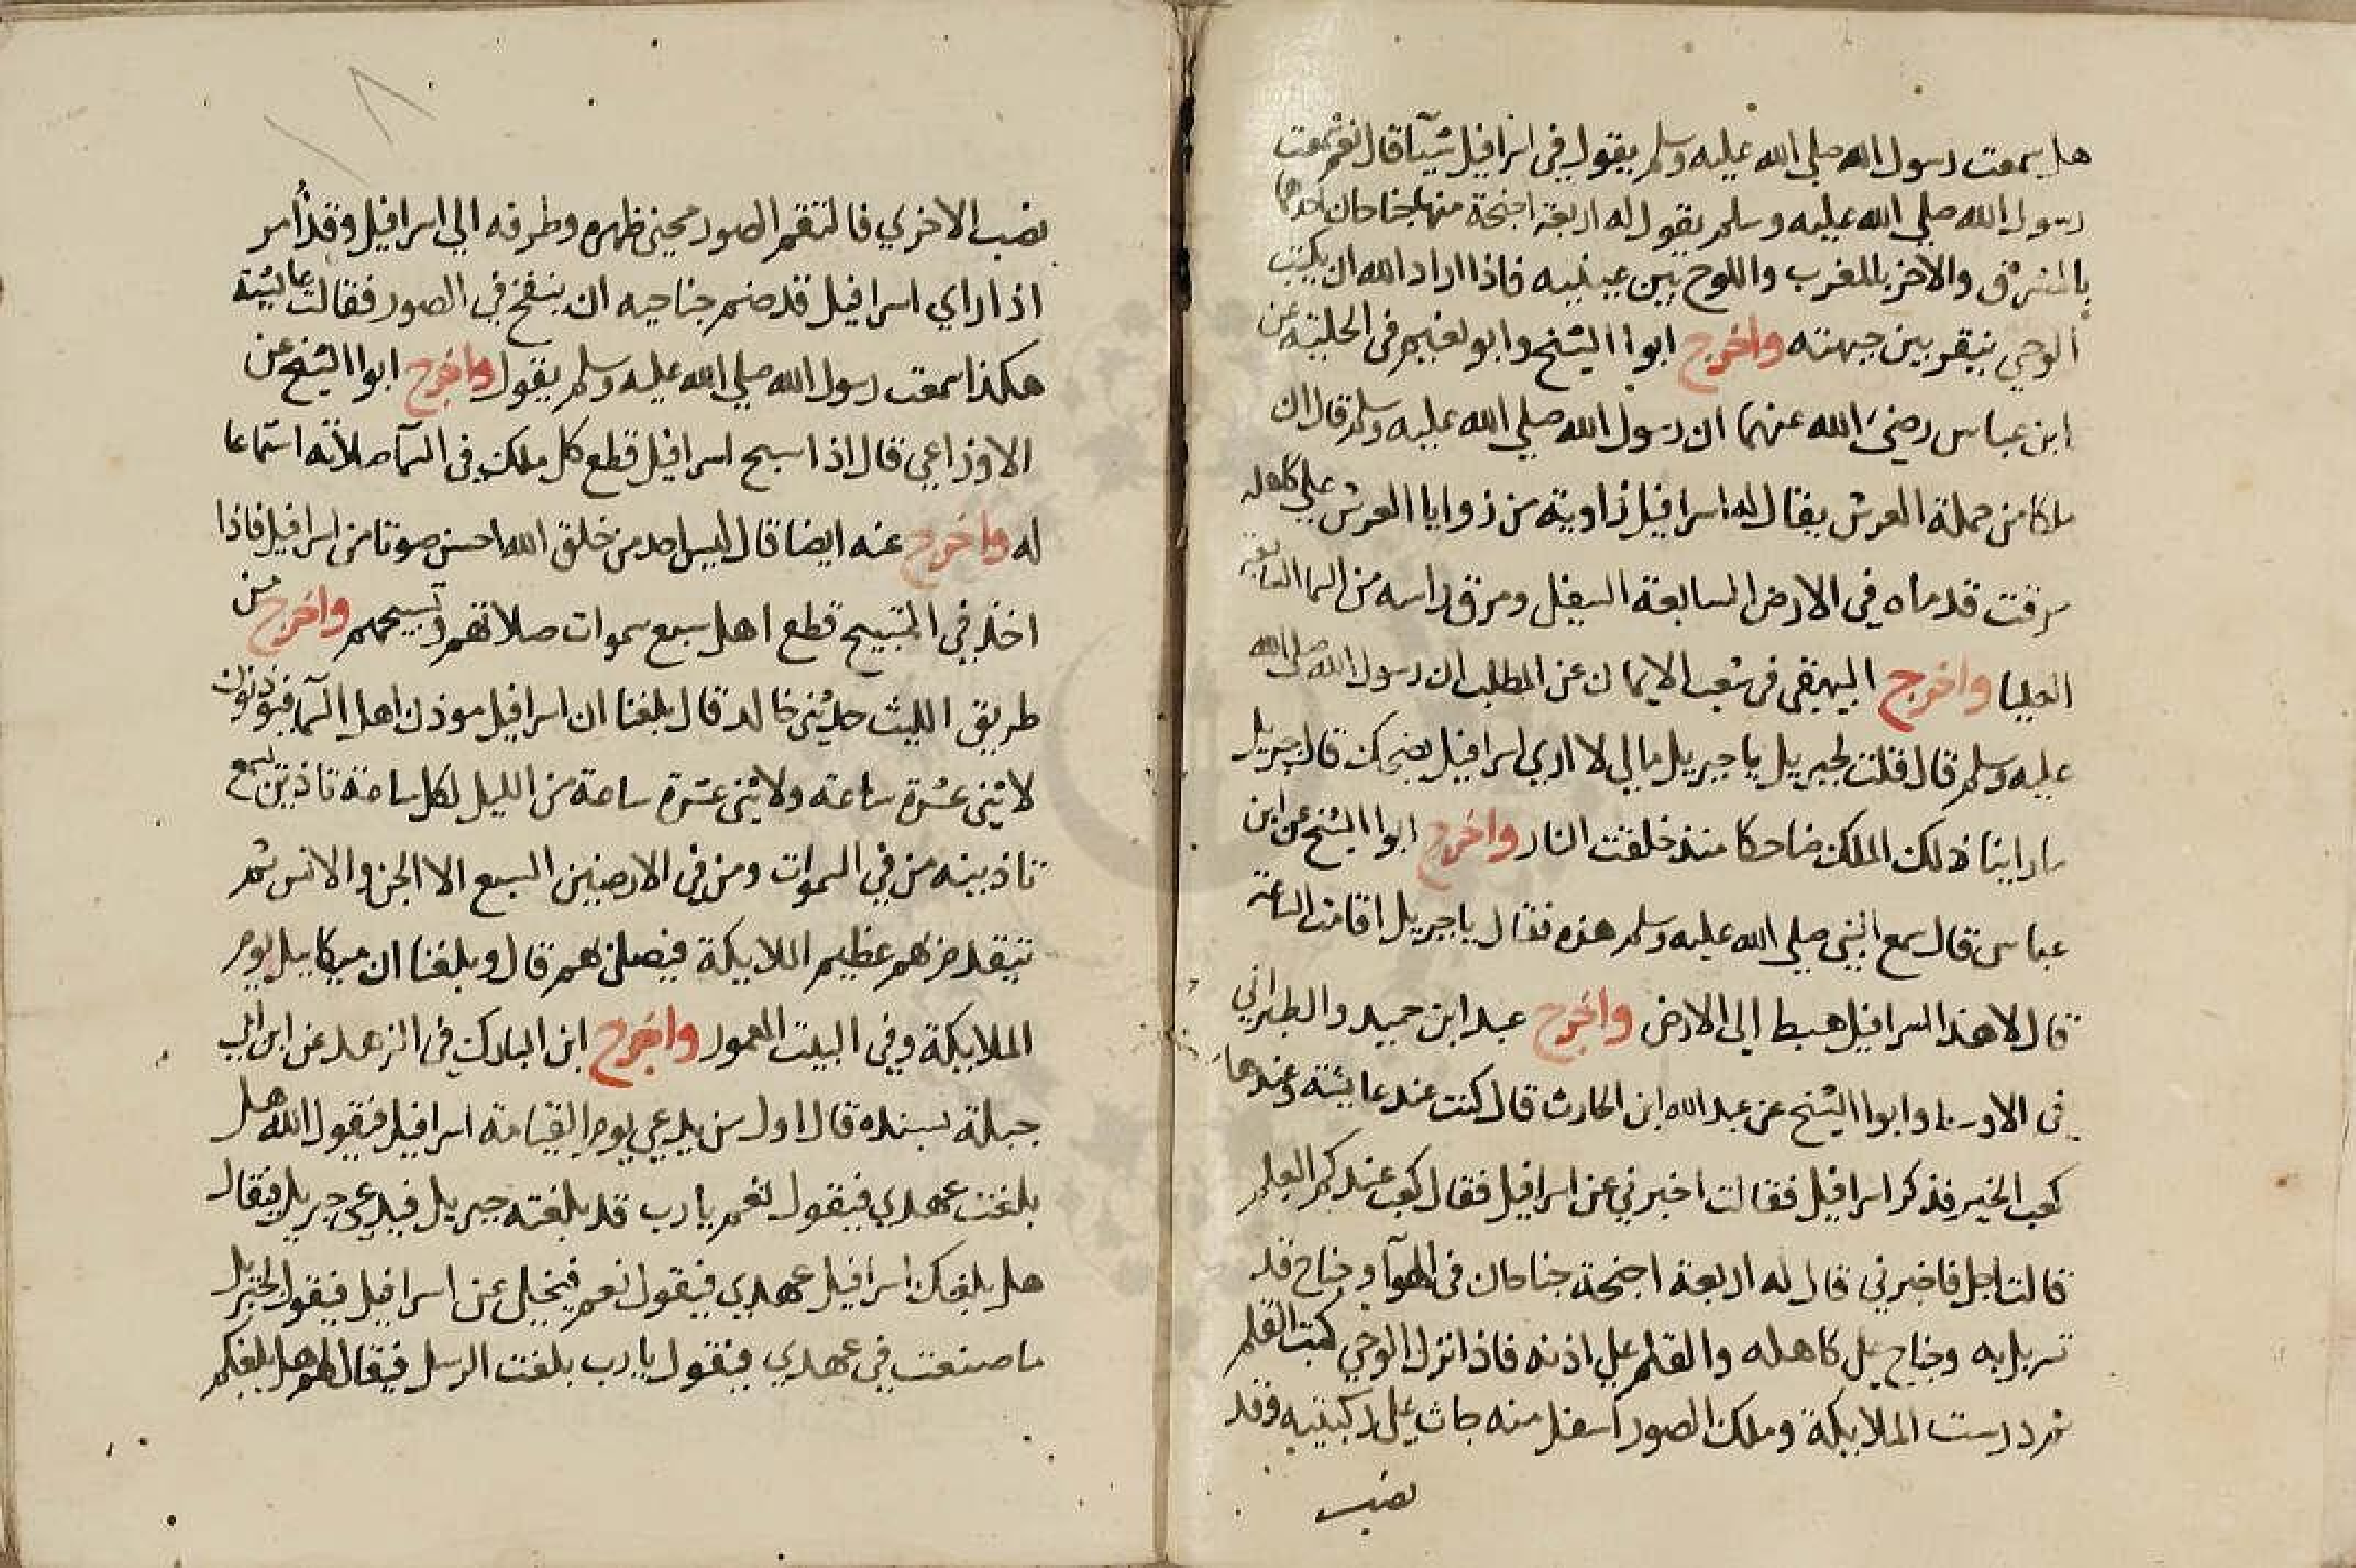 هل سمعت رسول الله صلي الله عليه وسلم يقول في اسرافيل شيآ قال نعم سمعت
رسول الله صلي الله عليه وسلم يقول له اربعة اجنحة منها جناحان احدهما
بالمشرق والاخر بالمغرب واللوح بين عينيه فاذا اراد الله ان يكتب
الوحي ينقر بين جبهته واخرج ابوا الشيخ وابو نعيم في الحلية عن
ابن عباس رضي الله عنهما ان رسول الله صلي الله عليه وسلم قال ان
ملكا من حملة العرش يقال له اسرافيل زاوية من زوايا العرش علي كاهله
مرقت قدماه في الارض السابعة السفل ومرق راسه من السما السابعة
العليا واخرج البيهقي في شعب الايمان عن المطلب ان رسول الله صلي الله
عليه وسلم قال قلت لجبريل يا جبريل مالي لا اري اسرافيل يضحك قال جبريل
ما راينا ذلك الملك ضاحكا منذ خلقت النار واخرج ابوا الشيخ عن ابن
عباس قال سمع النبي صلي الله عليه وسلم هذه فقال يا جبريل اقامت الساعة
قال لا هذا اسرافيل هبط الي الارض واخرج عبد ابن حميد والطبراني
في الاوسط وابوا الشيخ عن عبد الله ابن الحارث قال كنت عند عايشة وعندها
كعب الخير فذكر اسرافيل فقالت اخبرني عن اسرافيل فقال كعب عندكم العلم
قالت اجل فاخبرني قال له اربعة اجنحة جناحان في الهوآ وجناح قد
تسربل به وجناح علي كاهله والقلم علي اذنه فاذا نزل الوحي كتب القلم
ثم درست الملايكة وملك الصور اسفل منه جاث علي ركبتيه وقد
نصب
١٨
نصب الاخري فالتقم الصور محني ظهره وطرفه الي اسرافيل وقد أمر
اذا راي اسرافيل قد ضم جناحيه ان ينفخ في الصور فقالت عايشة
هكذا سمعت رسول الله صلي الله عليه وسلم يقول واخرج ابوا الشيخ عن
الاوزاعي قال اذا سبح اسرافيل قطع كل ملك في السمآ صلاته استماعا
له واخرج عنه ايضا قال ليس احد من خلق الله احسن صوتا من اسرافيل فاذا
اخذ في التسبيح قطع اهل سبع سموات صلاتهم وتسبيحهم واخرج من
طريق الليث حدثني خالد قال بلغنا ان اسرافيل موذن اهل السمآ فيوذن
لاثني عشرة ساعة ولاثني عشرة ساعة من الليل لكل ساعة تاذين يسمع
تاذينه من في السموات ومن في الارضين السبع الا الجن والانس ثم
يتقدم بهم عظيم الملايكة فيصلي بهم قال وبلغنا ان ميكاييل يوم
الملايكة وفي البيت المعمور واخرج ابن المبارك في الزهد عن ابن ابي
جبلة بسنده قال اول من يدعي يوم القيامة اسرافيل فيقول الله هل
بلغت عهدي فيقول نعم يا رب قد بلغته جبريل فيدعي جبريل فيقال
هل بلغك اسرافيل عهدي فيقول نعم فيخلي عن اسرافيل فيقول لجبريل
ما صنعت في عهدي فيقول يا رب بلغت الرسل فيقال لهم هل بلغكم